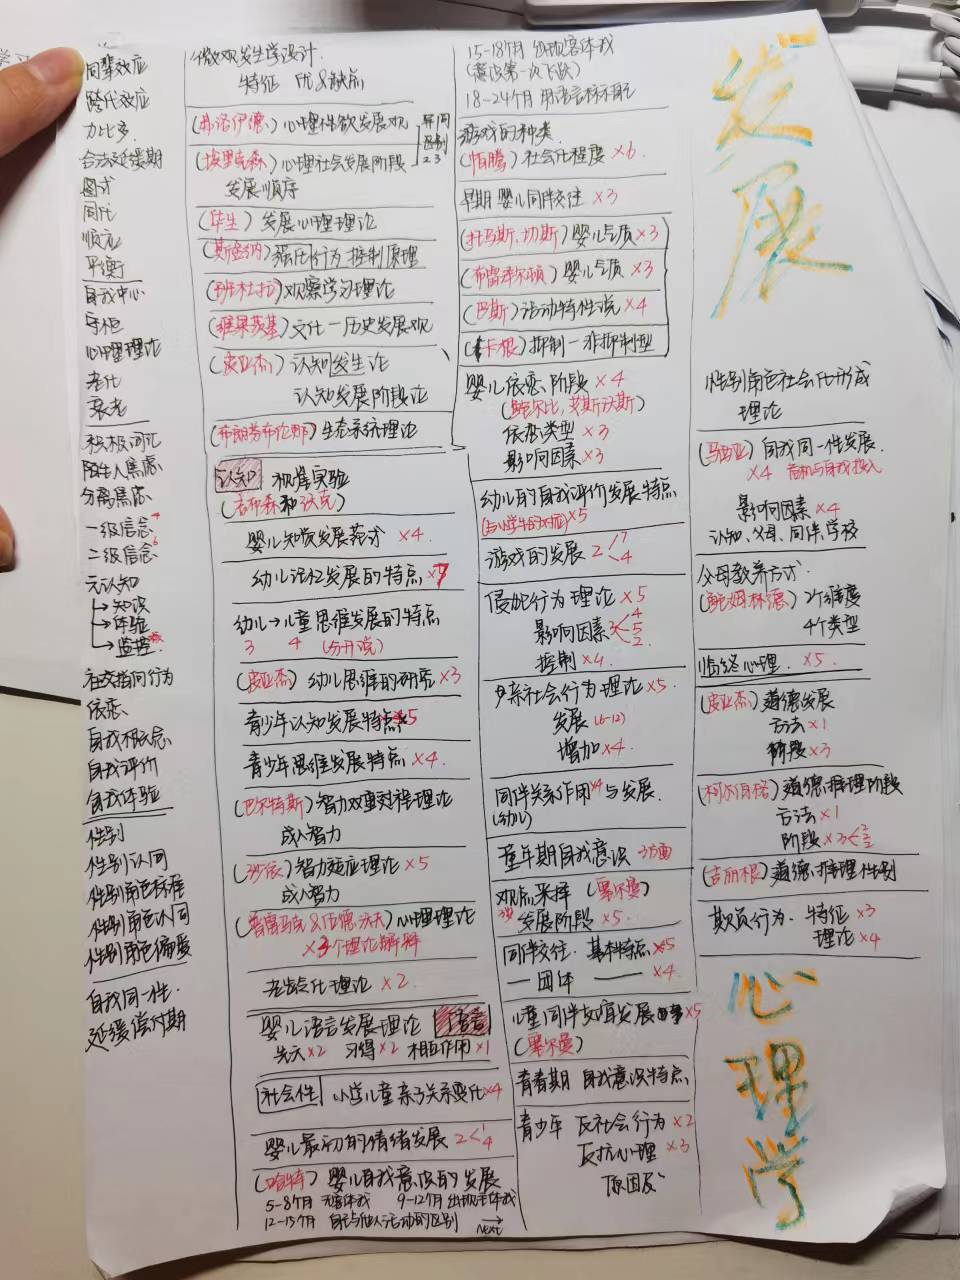 同辈效应
跨代效应
力比多
合法延缓期
图式
同化
顺应
平衡
自我中心
守恒
心理理论
老化
衰老
积极词汇
陌生人焦虑
分离焦虑
一级信念 4
二级信念 6
元认知
→知识
→体验
→监控
社交指向行为
依恋
自我概念
自我评价
自我体验
性别
性别认同
性别角色标准
性别角色认同
性别角色偏爱
自我同一性
延缓偿付期
微观发生学设计
特征 优&缺点
(弗洛伊德) 心理性欲发展观
(埃里克森) 心理社会发展阶段
异同
区别
2.3
发展顺序
(华生) 发展心理理论
(斯金纳) 强化行为控制原理
(班杜拉) 观察学习理论
(维果茨基) 文化一历史发展观
(皮亚杰) 认知发生论
认知发展阶段论
(布朗芬布伦那) 生态系统理论
认知 视崖实验
(吉布森和沃克)
婴儿知觉发展范式 ×4
幼儿记忆发展的特点 ×7
幼儿→儿童思维发展的特点
3 4 (分开说)
(皮亚杰) 幼儿思维的研究 ×3
青少年认知发展特点 ×5
青少年思维发展特点 ×4
(巴尔特斯) 智力双重过程理论
成人智力
(沙依) 智力适应理论 ×5
成人智力
(普雷马克&伍德沃夫) 心理理论
×3个理论解释
老龄化理论 ×2
婴儿语言发展理论 语言
先天×2 习得×2 相互作用×1
社会性 小学儿童亲子关系变化×4
婴儿最初的情绪发展 2<1 4
(哈特) 婴儿自我意识的发展
5-8个月 无客体我 9-12个月 出现主体我
12-15个月 自己与他人活动的区别 next→
15-18个月 出现客体我
(意识第一次飞跃)
18-24个月 用语言标示自己
游戏的种类
(帕腾) 社会化程度 ×6
早期婴儿同伴交往 ×3
(托马斯、切斯) 婴儿气质×3
(布雷泽尔顿) 婴儿气质 ×3
(巴斯) 活动特性说 ×4
(卡根) 抑制一非抑制型
婴儿依恋阶段 ×4
(鲍尔比,艾斯沃斯)
依恋类型 ×3
影响因素 ×3
幼儿的自我评价发展特点
×5
游戏的发展 2<7 4
侵犯行为理论 ×5
影响因素 3<4 5 2
控制 ×4
亲社会行为理论 ×5
发展 (6-12)
增加 ×4
同伴关系作用×4与发展
(幼儿)
童年期自我意识 3方面
观点采择 (塞尔曼)
发展阶段 ×5
同伴交往 基本特点 ×5
一团体 —— ×4
儿童同伴友谊发展 ×5
(塞尔曼)
青春期 自我意识特点
青少年 反社会行为 ×2
反抗心理 ×3
原因及
性别角色社会化形成
理论
(马西亚) 自我同一性发展
×4 危机与自我投入
影响因素 ×4
认知、父母、同伴、学校
父母教养方式
(鲍姆林德) 2个维度
4个类型
临终心理 ×5
(皮亚杰) 道德发展
方法 ×1
阶段 ×3
(柯尔伯格) 道德推理阶段
方法 ×1
阶段 ×3<2 3
(吉丽根) 道德推理性别
欺负行为 特征 ×3
理论 ×4
发
展
心
理
学